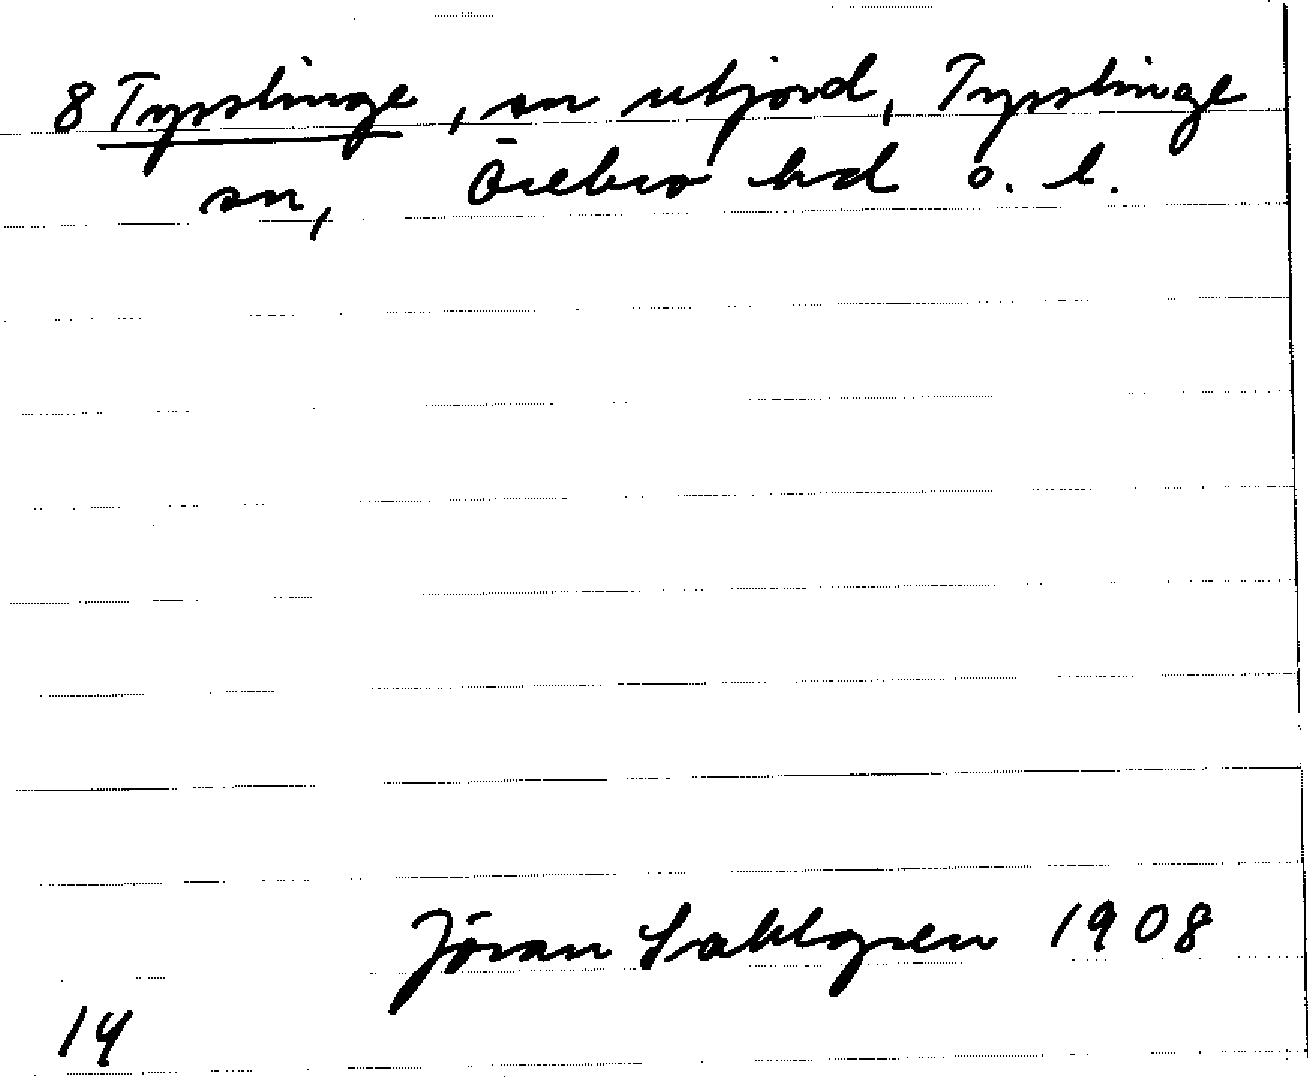 8 Tysslinge, sn utjord, Tysslinge
sn, Örebro hd o. l.
Jöran Sahlgren 1908
14